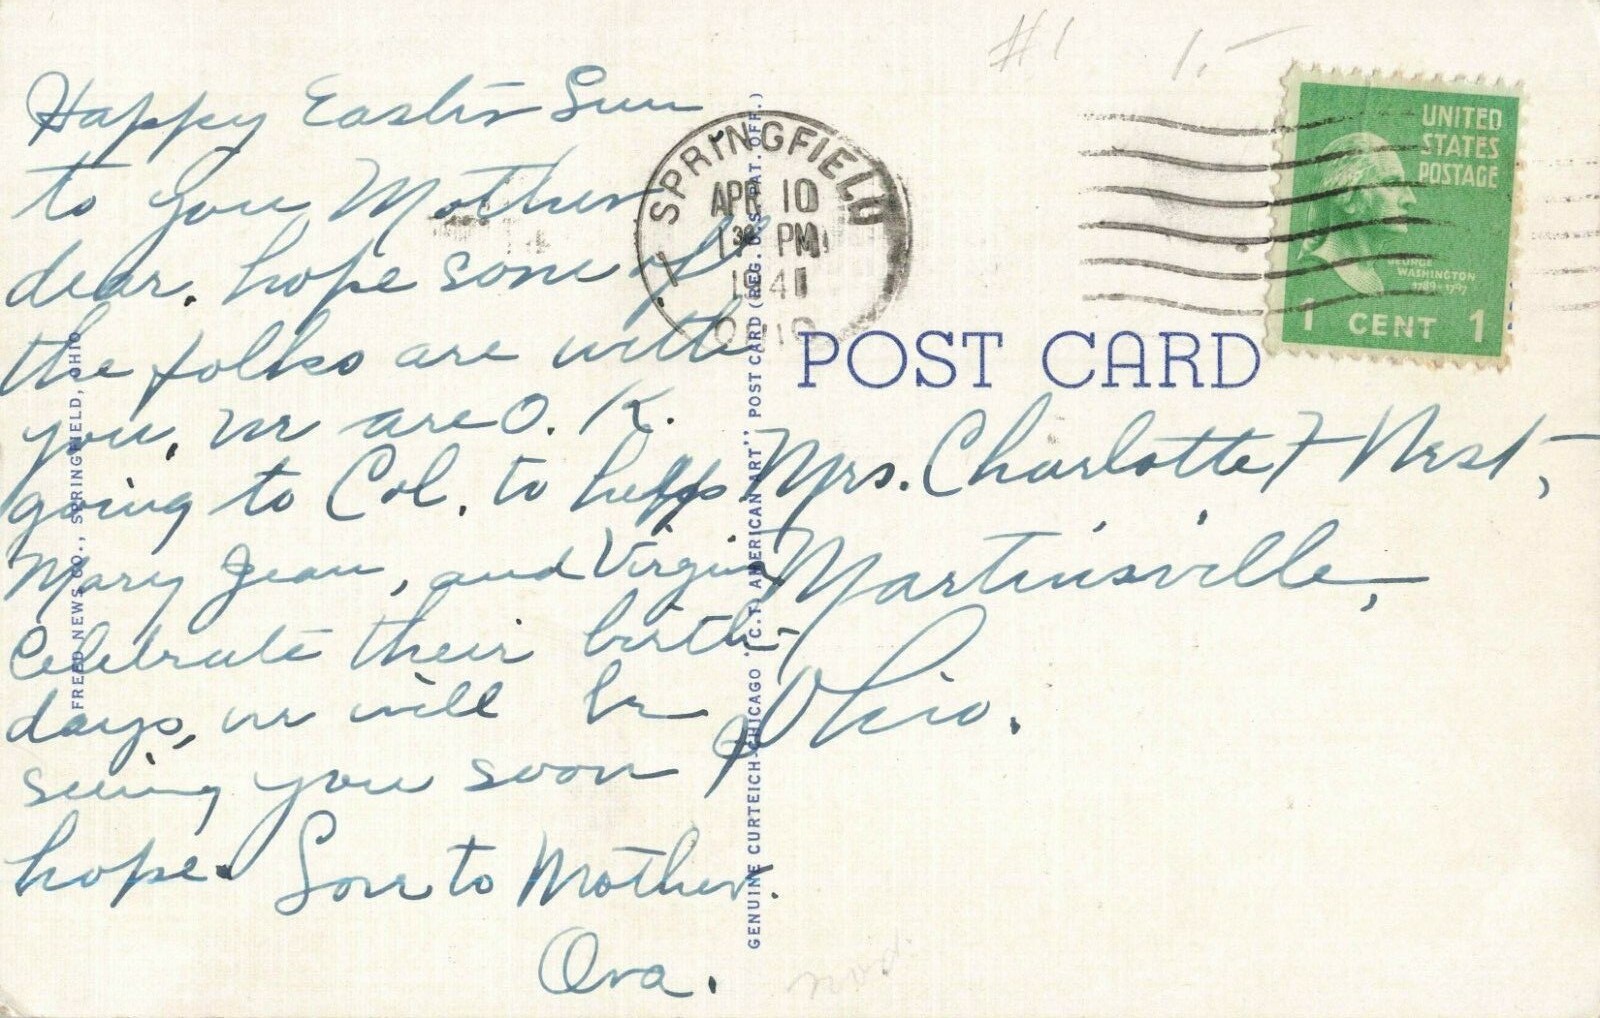 #1 1.-
Happy Easter Sun
to you Mother
dear. hope some of
the folks are with
you, we are O.K.
going to Col. to help
Mary Jean, and Virginia
Celebrate their birth-
days, we will be
seeing you soon I
hope. Love to Mother.
Ova.
SPRINGFIELD
APR 10
1 30 PM
1941
OHIO
UNITED
STATES
POSTAGE
GEORGE
WASHINGTON
1789-1797
1 CENT 1
POST CARD
Mrs. Charlotte West,
Martinsville,
Ohio.
FREED NEWS CO., SPRINGFIELD, OHIO
GENUINE CURTEICH-CHICAGO "C.T. AMERICAN ART" POST CARD (REG. U.S. PAT. OFF.)